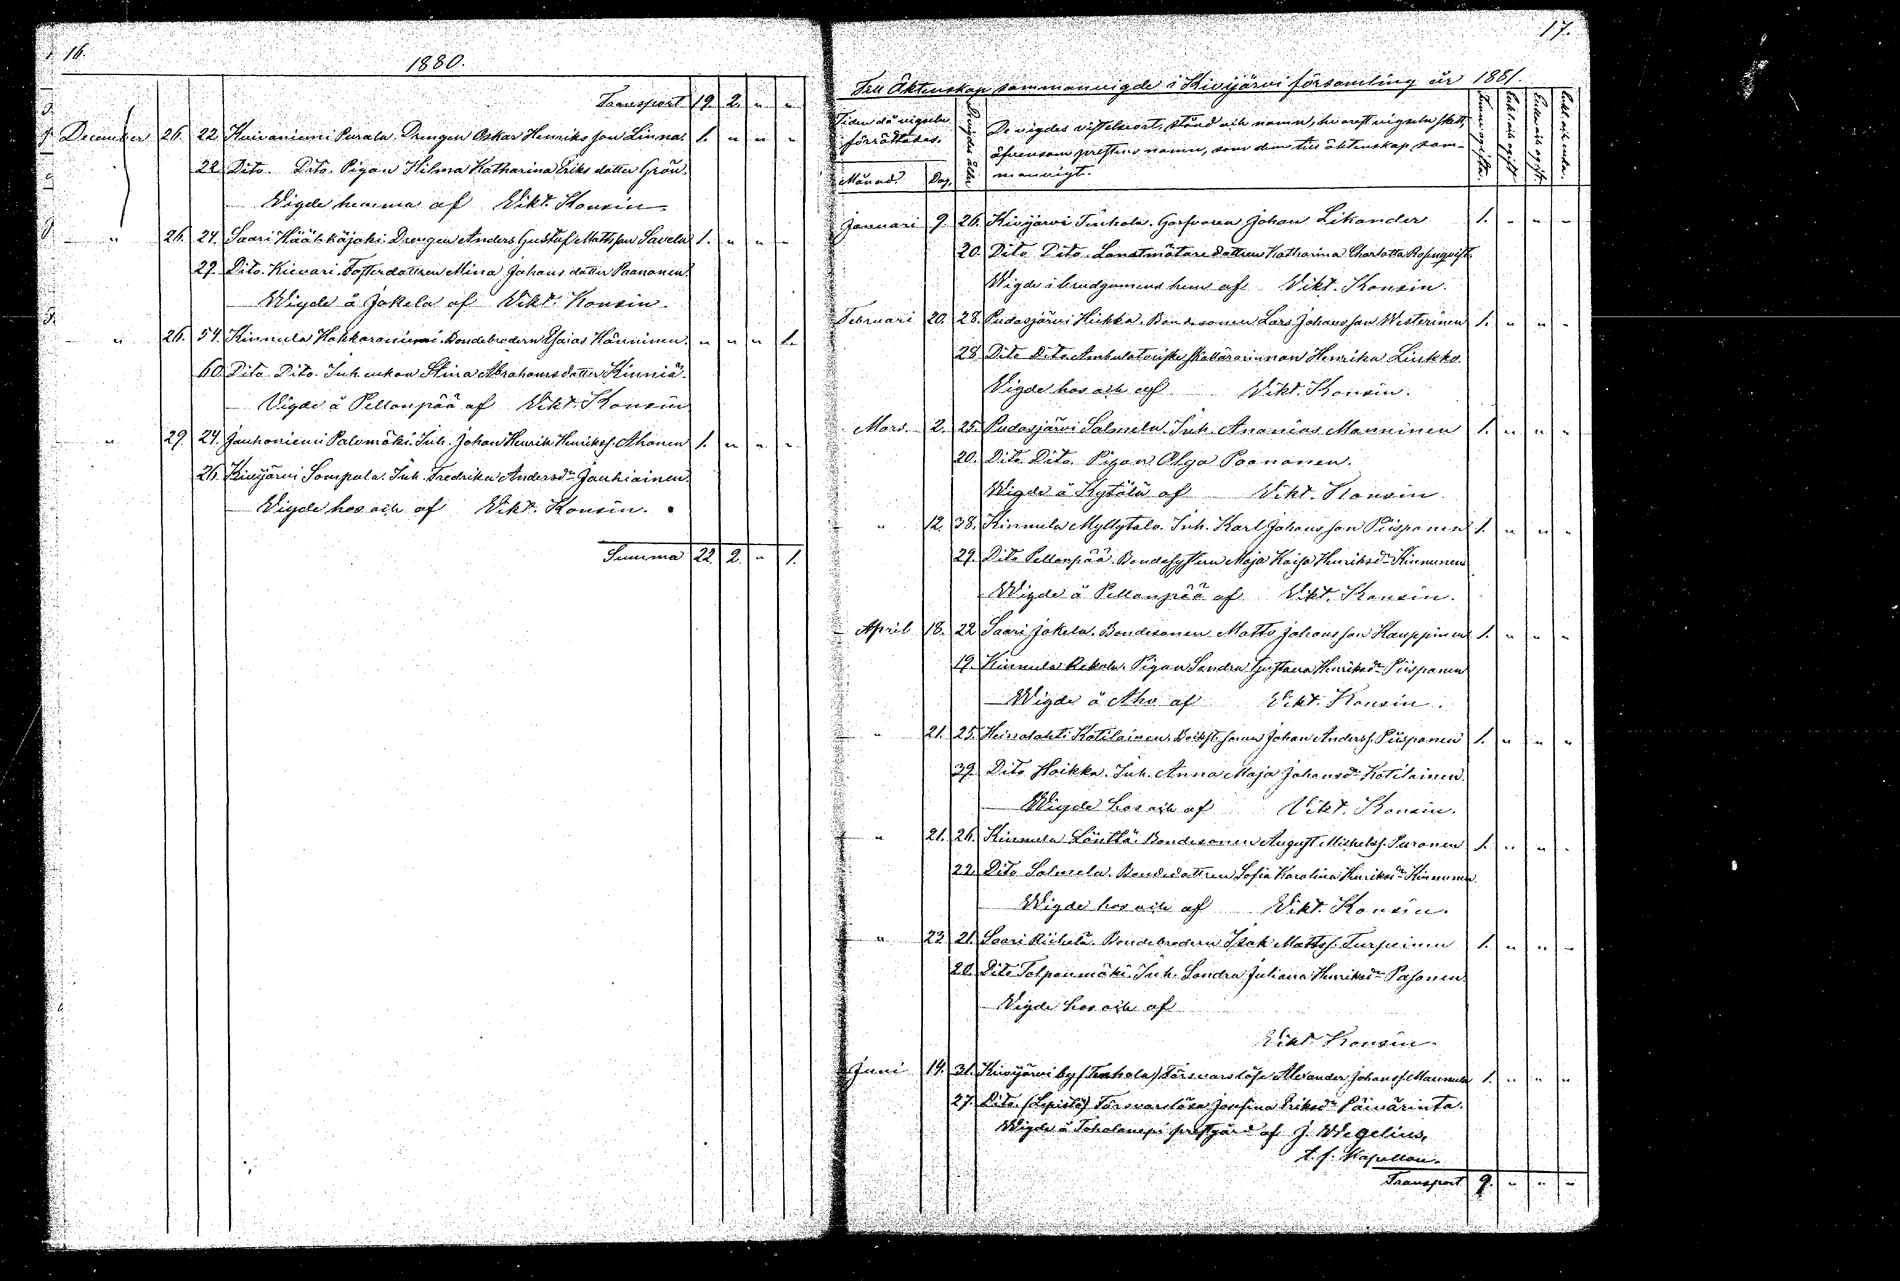 16.
1880.
Transport 19. 2. " "
December 26. 22. Kuivaniemi Perala. Drengen Oskar Henriksson Linna. 1. " " "
22. Dito. Dito. Pigan Hilma Katharina Eriksdotter Grön.
Wigde hemma af Vikt. Konsin.
" 26. 24. Saari Häähkäjoki Drengen Anders Gustaf Mattsson Savela 1. " " "
29. Dito. Kievari. Fosterdottren Mina Johansdotter Paananen.
Wigde å Jokela af Vikt. Konsin.
" 26. 54. Kinnula Hakkaraniemi Bondebrodern Esaias Hänninen. " " " 1.
60. Dito. Dito. Inh. enkan Stina Abrahamsdotter Kinniä.
Vigde å Pellonpää af Vikt. Konsin
" 29. 24. Jauhoniemi Palomäki. Inh. Johan Henrik Henrikss. Ahonen 1. " " "
26. Kivijärvi Sompala. Inh. Fredrika Andersdr Jauhiainen.
Vigde hos och af Vikt. Konsin.
Summa 22. 2. " 1.
17.
Till Äktenskap sammanvigde i Kivijärvi församling år 1881.
Tiden då vigseln förrättades.
Månad. Dag.
De vigdes ålder
De vigdes vistelseort, stånd och namn, hvarest vigseln skett,
äfvensom prestens namn, som dem till äktenskap sam-
manvigt.
Januari 9. 26. Kivijärvi Tinhola. Garfvaren Johan Likander 1. " " "
20. Dito Dito. Landtmätaredottren Katharina Charlotta Rosenqvist.
Wigde i brudgummens hem af Vikt. Konsin.
Februari 20. 28. Pudasjärvi Hiekka. Bondesonen Lars Johansson Westerinen 1. " " "
28. Dito Dito Ambulatoriske skollärarinnan Henrika Linkko.
Vigde hos och af Vikt. Konsin.
Mars 2. 25. Pudasjärvi Salmela. Inh. Ananias Manninen 1. " " "
20. Dito Dito. Pigan Olga Paananen.
Wigde å Kytölä af Vikt. Konsin.
" 12. 38. Kinnula Myllytalo. Inh. Karl Johansson Piispanen 1. " " "
29. Dito Pellonpää. Bondesystern Maja Kaisa Henriksdr Kinnunen
Wigde å Pellonpää af Vikt. Konsin.
April 18. 22 Saari Jokela. Bondesonen Matts Johansson Kauppinen 1. " " "
19. Kinnula Rekola. Pigan Sandra Gustava Henriksdr Piispanen
Wigde å Aho af Vikt. Konsin.
" 21. 25. Heinolahti Kotilainen. Johan Anderss. Piispanen 1. " " "
39. Dito Hoikka. Inh. Anna Maja Johansdr Kotilainen.
Wigde hos och af Vikt. Konsin.
" 21. 26. Kinnula Löuttä. Bondesonen August Michelss. Puronen 1. " " "
22. Dito Salmela. Bondedottren Sofia Karolina Henriksdr Kinnunen.
Wigde hos och af Vikt. Konsin.
" 23. 21. Saari Riihelä. Bondebrodern Isak Mattss. Turpeinen 1. " " "
20. Dito Tolpanmäki. Inh. Sandra Juliana Henriksdr Pasonen.
Vigde hos och af
Vikt. Konsin.
Juni 14. 31. Kivijärvi by (Tinhola) Försvarslöse Alexander Johanss. Mannula 1. " " "
27. Dito. (Lepistö) Försvarslösa Josefina Eriksdr Päivärinta.
Wigde å Toholampi prestgård af J. Wegelius,
t.f. Kapellan.
Transport 9. " " "